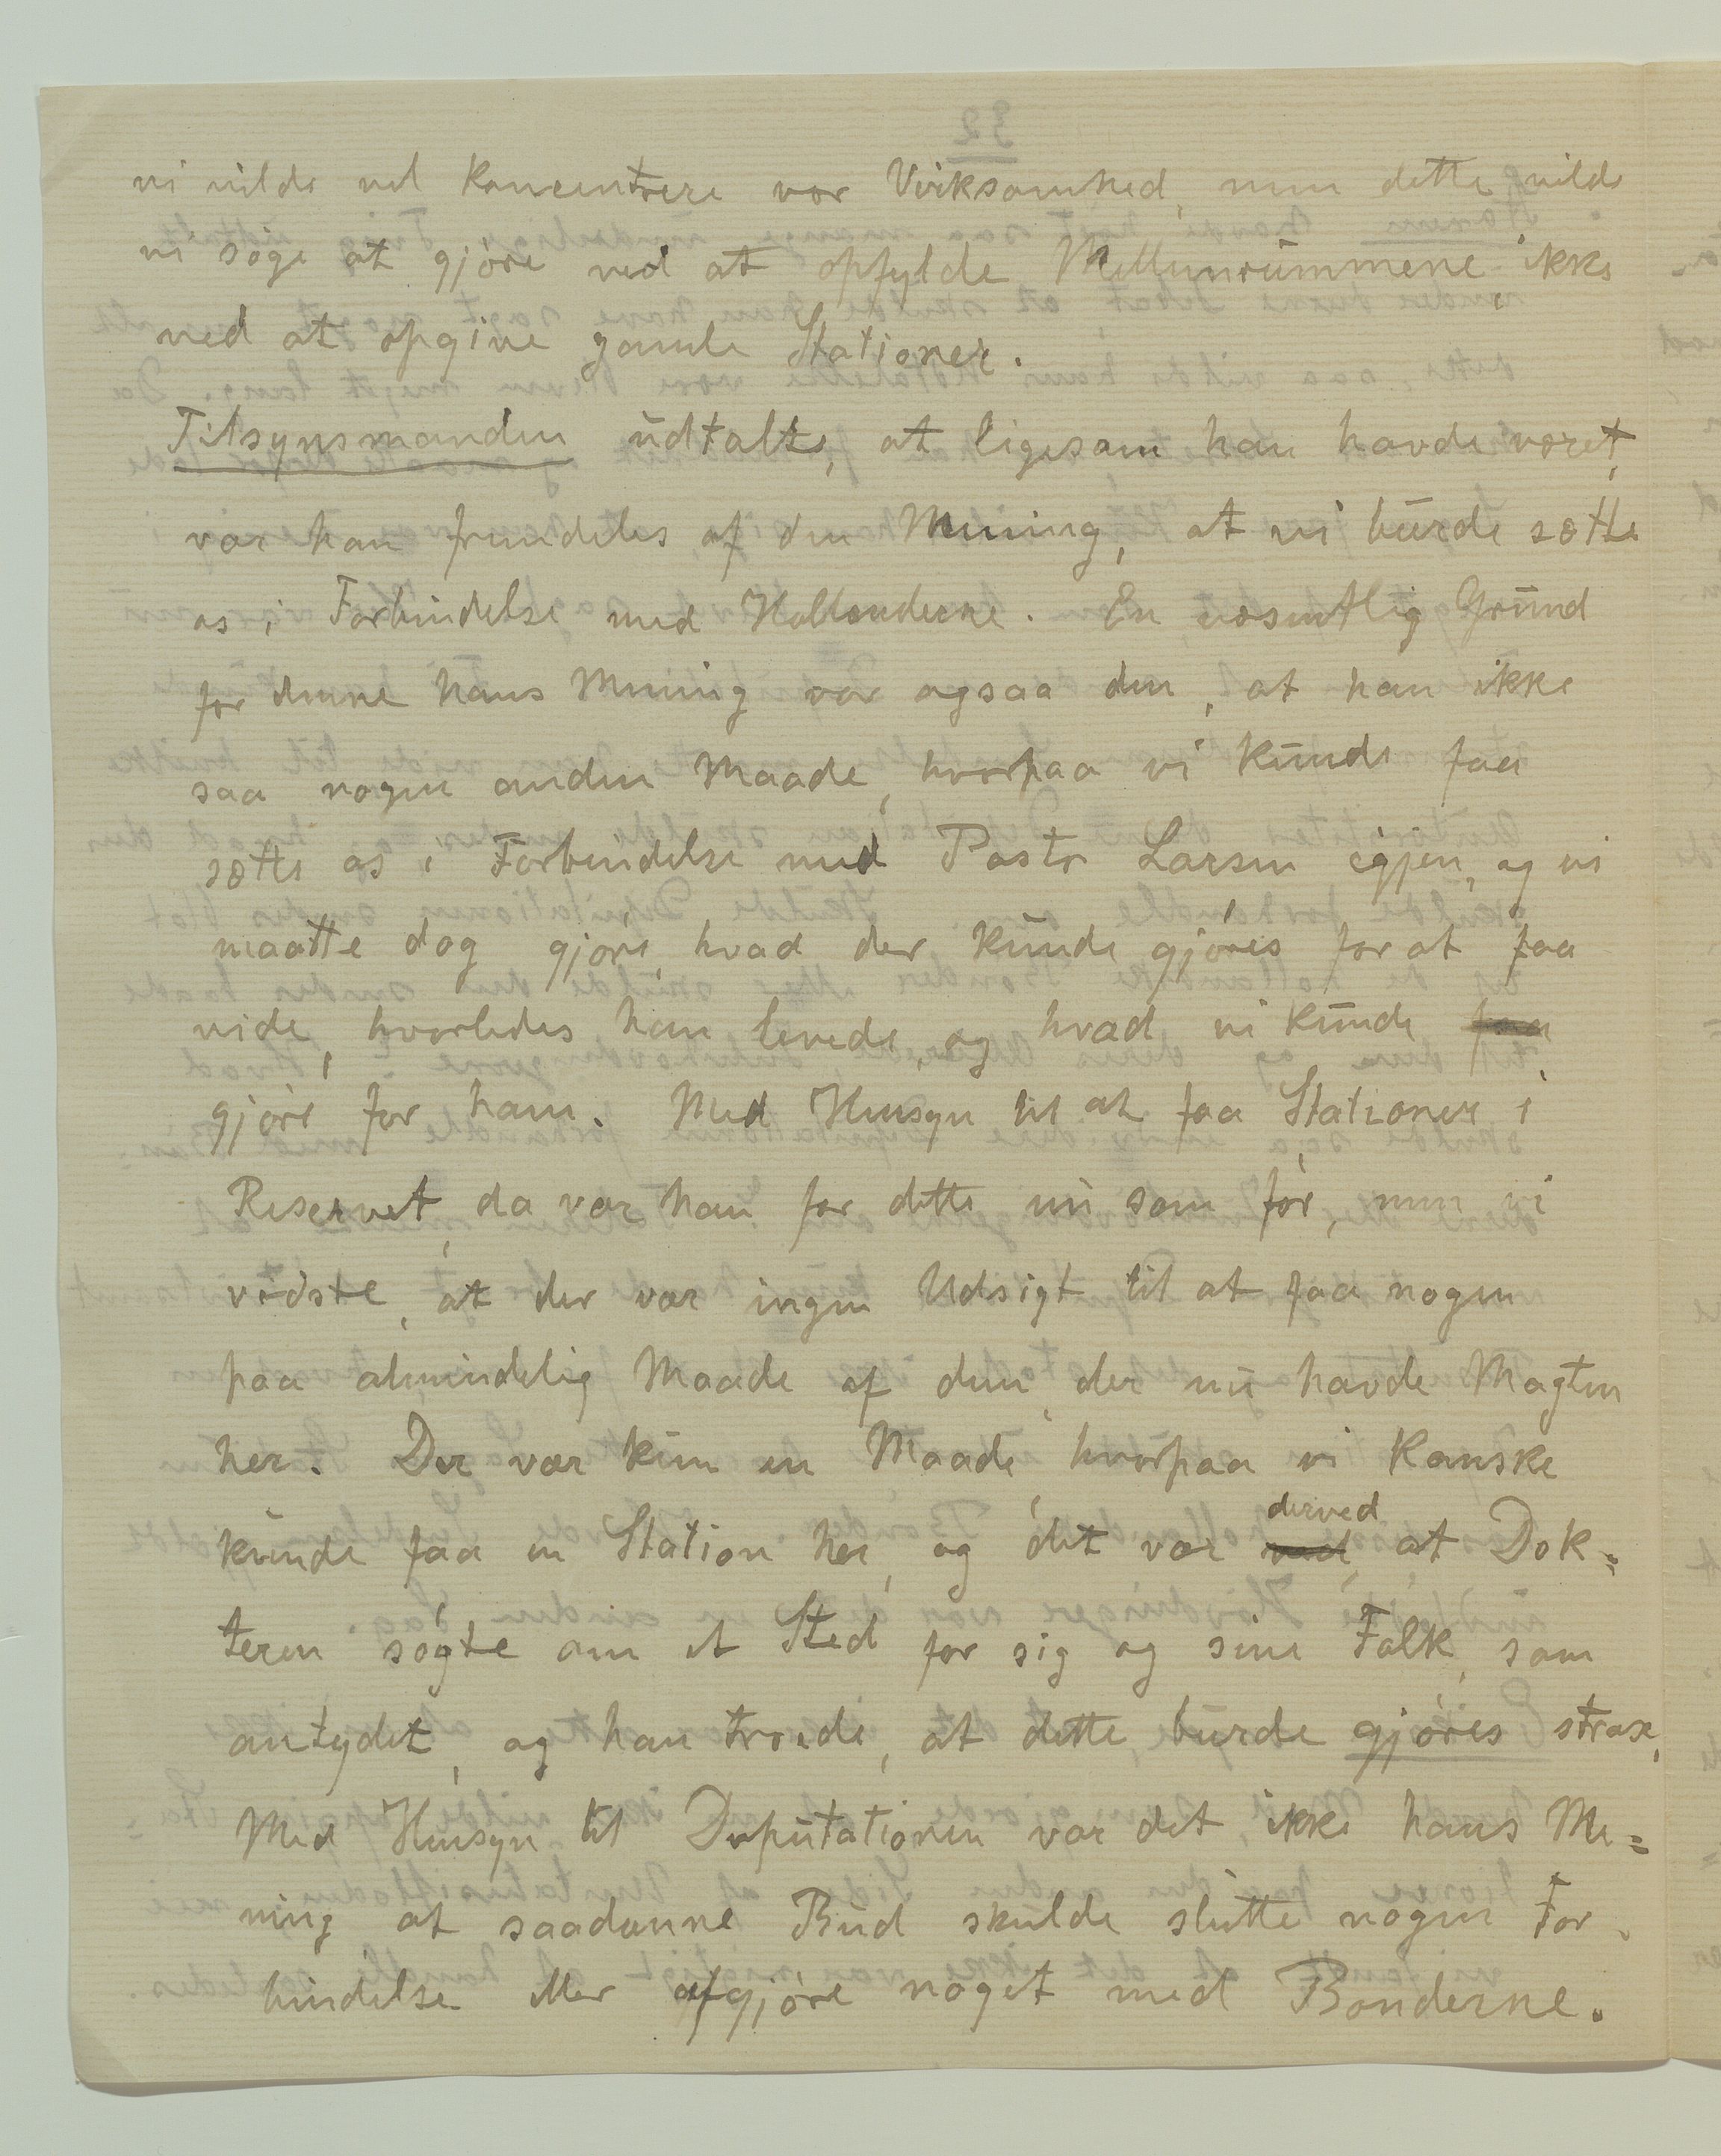 vi vilde vel koncentrere vor Virksomhed, men dette vilde
vi søge at gjøre ved at opfylde Mellemrummene, ikke
ved at opgive gamle Stationer.
Tilsynsmanden udtalte, at ligesom han havde været,
var han fremdeles af den Mening, at vi burde sætte
os i Forbindelse med Hollænderne. En væsentlig Grund
for denne hans Mening var ogsaa den, at han ikke
saa nogen anden Maade, hvorpaa vi kunde faa
sætte os i Forbindelse med Pastor Larsen igjen, og vi
maatte dog gjøre, hvad der kunde gjøres for at faa
vide, hvorledes han levede, og hvad vi kunde faa
gjøre for ham. Med Hensyn til at faa Stationer i
Reservet, da var han for dette nu som før, men vi
vidste, at der var ingen Udsigt til at faa nogen
paa almindelig Maade af dem, der nu havde Magten
her. Der var kun en Maade, hvorpaa vi kanske
kunde faa en Station her, og det var ved derved, at Dok=
teren søgte om et Sted for sig og sine Folk, som
antydet, og han troede, at dette burde gjøres strax.
Med Hensyn til Deputationen var det ikke hans Me=
ning at saadanne Bud skulde slutte nogen For
bindelse eller afgjøre noget med Bønderne.